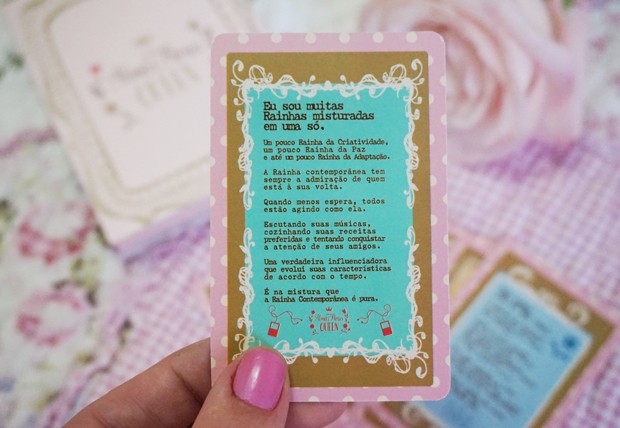 Eu sou muitas
Rainhas misturadas
em uma só.
Um pouco Rainha da Criatividade,
um pouco Rainha da Paz
e até um pouco Rainha da Adaptação.
A Rainha contemporânea tem
sempre a admiração de quem
está à sua volta.
Quando menos espera, todos
estão agindo como ela.
Escutando suas músicas,
cozinhando suas receitas
preferidas e tentando conquistar
a atenção de seus amigos.
Uma verdadeira influenciadora
que evolui suas características
de acordo com o tempo.
É na mistura que
a Rainha Contemporânea é pura.
QUEEN
QUEEN